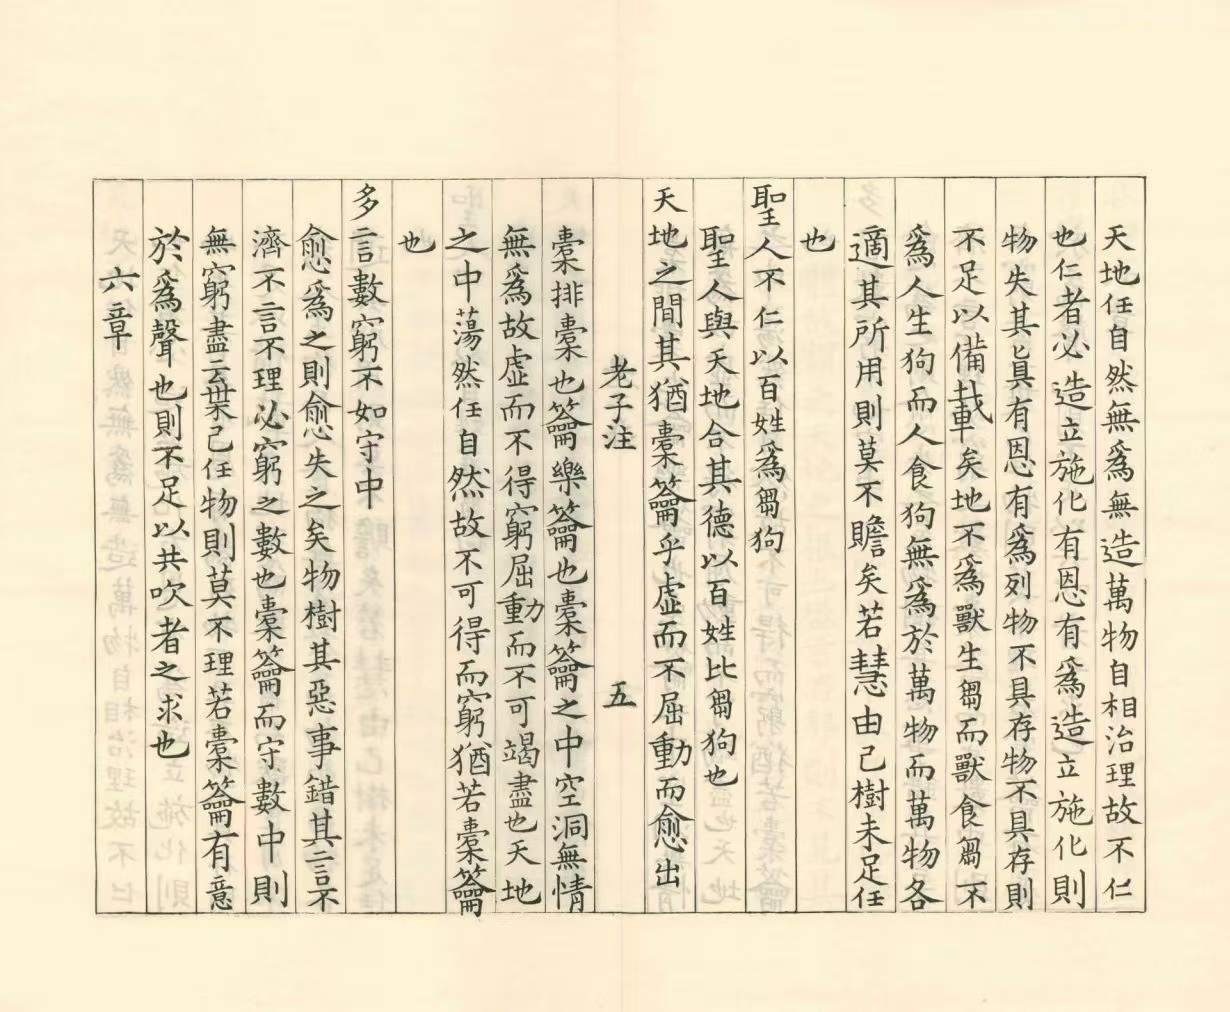 天地任自然無爲無造萬物自相治理故不仁
也仁者必造立施化有恩有爲造立施化則
物失其眞有恩有爲列物不具存物不具存則
不足以備載矣地不爲獸生芻而獸食芻不
爲人生狗而人食狗無爲於萬物而萬物各
適其所用則莫不贍矣若慧由己樹未足任
也
聖人不仁以百姓爲芻狗
聖人與天地合其德以百姓比芻狗也
天地之間其猶橐籥乎虛而不屈動而愈出
老子注 五
橐排橐也籥樂籥也橐籥之中空洞無情
無爲故虛而不得窮屈動而不可竭盡也天地
之中蕩然任自然故不可得而窮猶若橐籥
也
多言數窮不如守中
愈爲之則愈失之矣物樹其惡事錯其言不
濟不言不理必窮之數也橐籥而守數中則
無窮盡棄己任物則莫不理若橐籥有意
於爲聲也則不足以共吹者之求也
六章